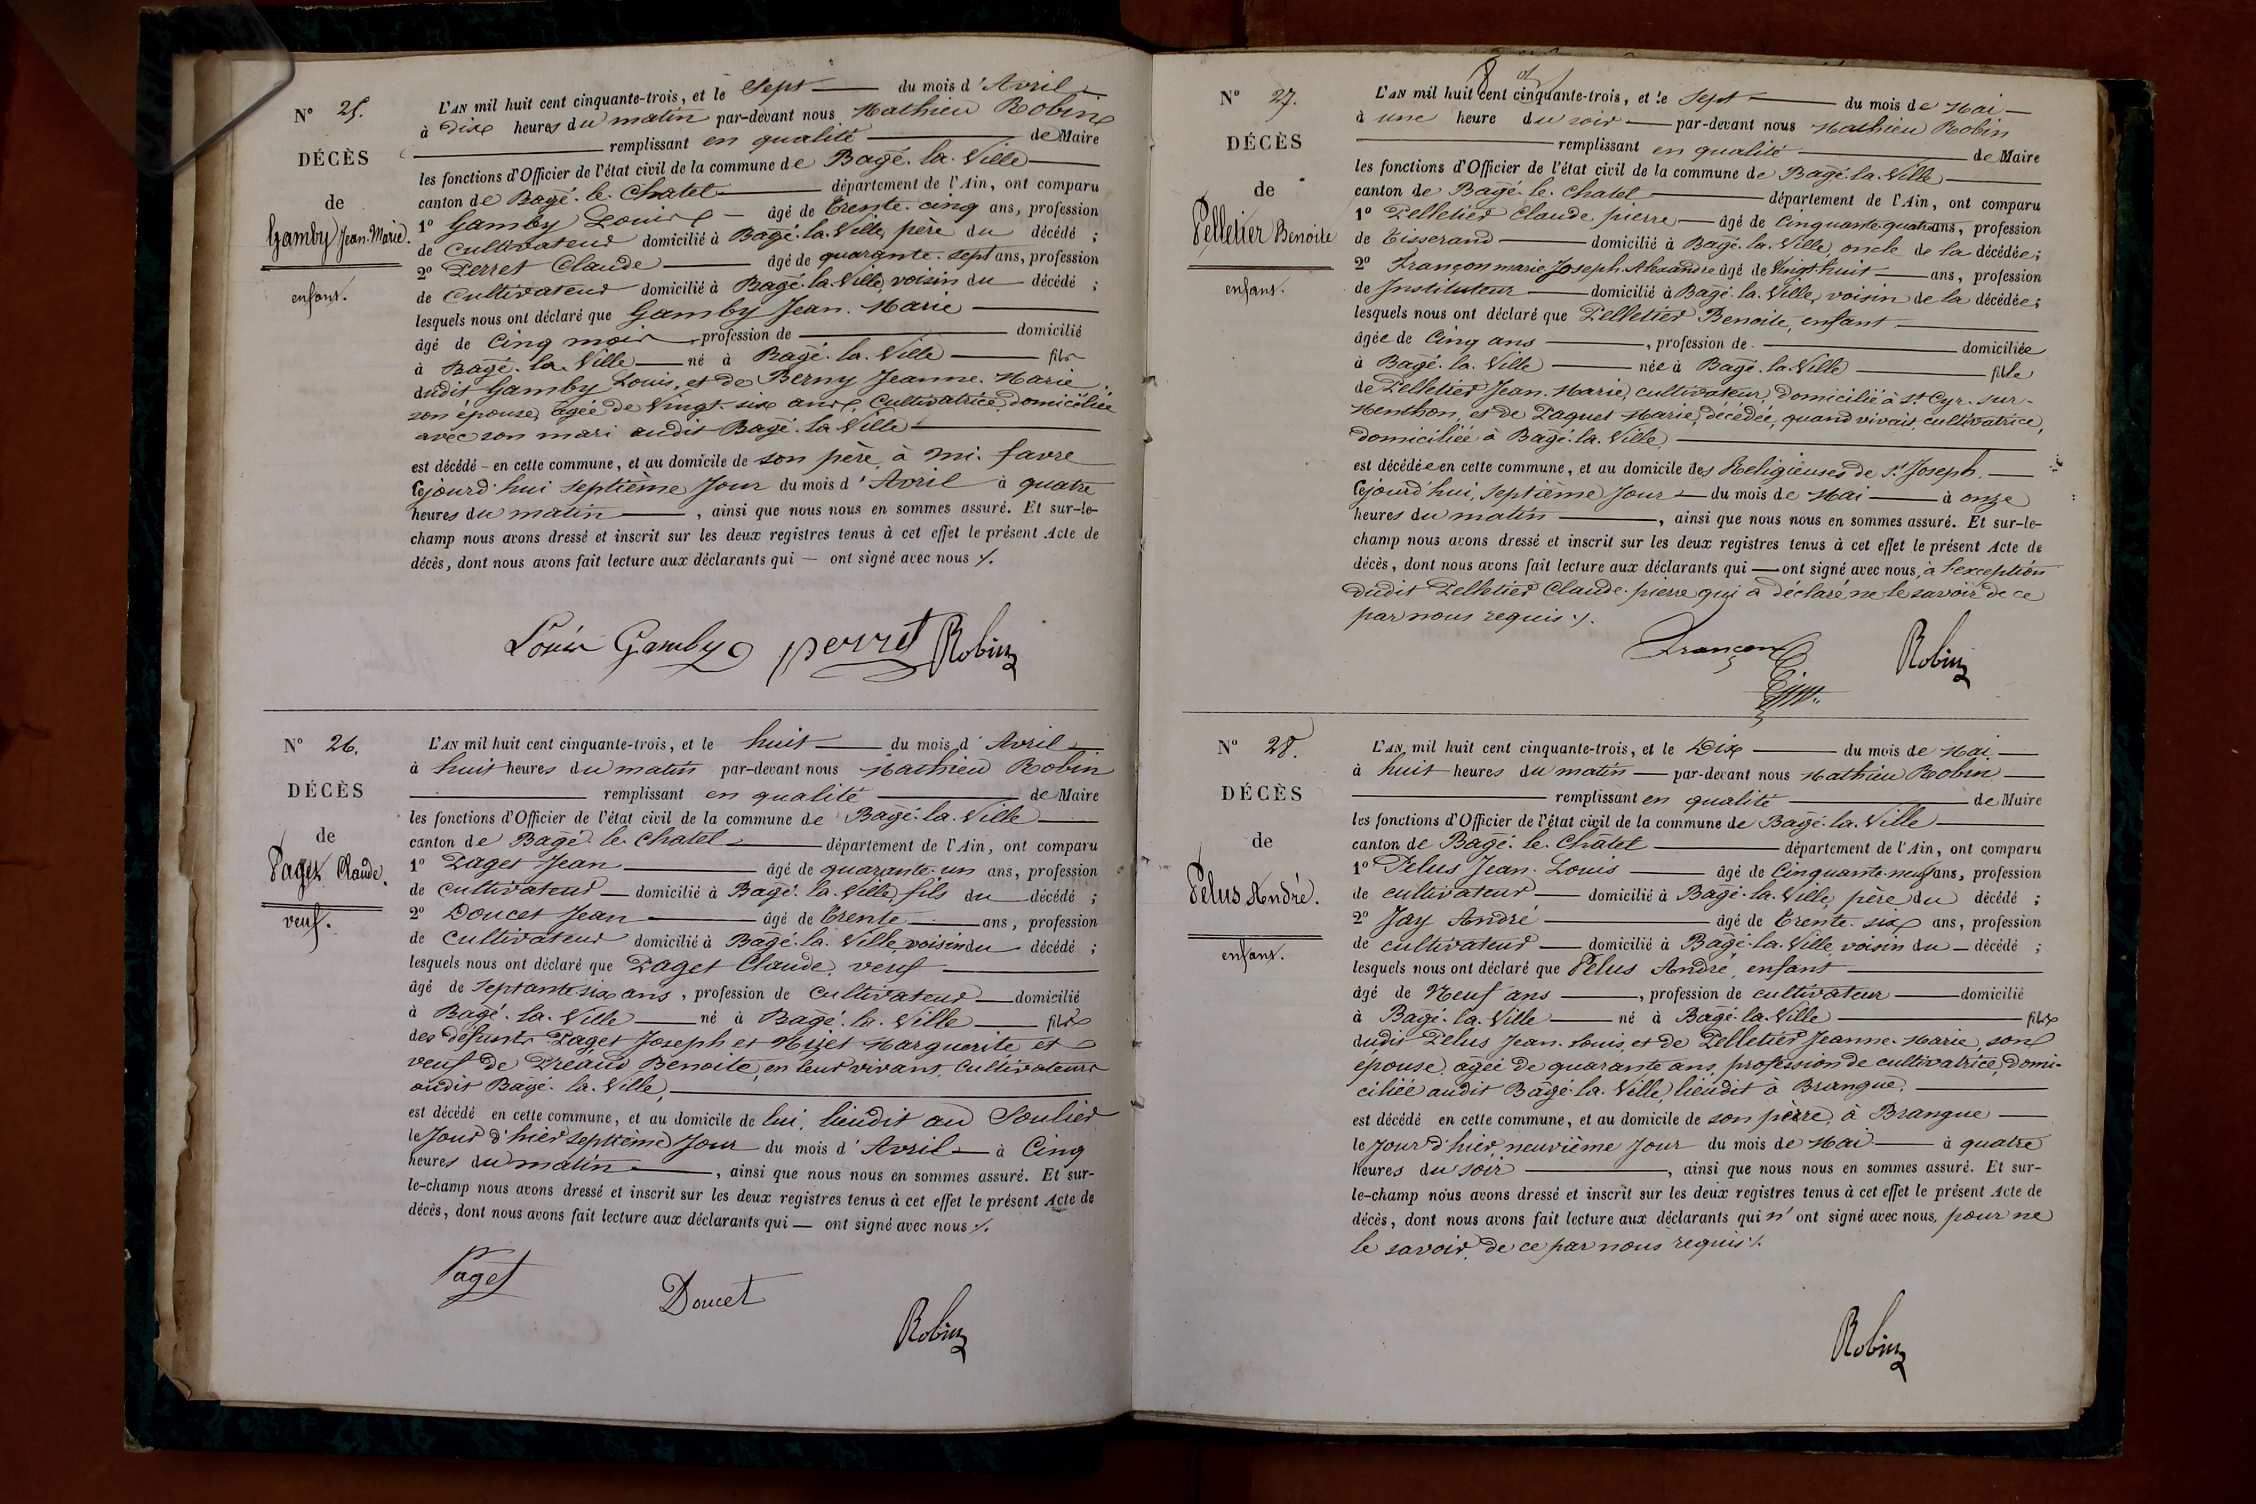 N° 25.
DÉCÈS
de
Gamby Jean-Marie.
enfant.
L'AN mil huit cent cinquante-trois, et le Sept du mois d'Avril
à Dix heures du matin par-devant nous Mathieu Robin
remplissant en qualité de Maire
les fonctions d'Officier de l'état civil de la commune de Bagé-la-Ville
canton de Bagé-le-Chatel département de l'Ain, ont comparu
1° Gamby Louis âgé de Trente-cinq ans, profession
de Cultivateur domicilié à Bagé-la-Ville, père du décédé ;
2° Perret Claude âgé de quarante-sept ans, profession
de Cultivateur domicilié à Bagé-la-Ville, voisin du décédé ;
lesquels nous ont déclaré que Gamby Jean-Marie
âgé de Cinq mois profession de domicilié
à Bagé-la-Ville né à Bagé-la-Ville fils
dudit Gamby Louis, et de Berny Jeanne-Marie,
son épouse, âgée de Vingt-six ans, Cultivatrice, domiciliée
avec son mari audit Bagé-la-Ville
est décédé en cette commune, et au domicile de son père, à Mi-favre
Cejourd'hui septième Jour du mois d'Avril à quatre
heures du matin , ainsi que nous nous en sommes assuré. Et sur-le-
champ nous avons dressé et inscrit sur les deux registres tenus à cet effet le présent Acte de
décès, dont nous avons fait lecture aux déclarants qui — ont signé avec nous ./.
Louis Gamby perret Robin
N° 26.
DÉCÈS
de
Paget Claude.
veuf.
L'AN mil huit cent cinquante-trois, et le huit du mois d'Avril
à huit heures du matin par-devant nous Mathieu Robin
remplissant en qualité de Maire
les fonctions d'Officier de l'état civil de la commune de Bagé-la-Ville
canton de Bagé-le-Chatel département de l'Ain, ont comparu
1° Paget Jean âgé de quarante-un ans, profession
de Cultivateur domicilié à Bagé-la-Ville, fils du décédé ;
2° Doucet Jean âgé de Trente ans, profession
de Cultivateur domicilié à Bagé-la-Ville, voisin du décédé ;
lesquels nous ont déclaré que Paget Claude, veuf
âgé de septante six ans, profession de Cultivateur domicilié
à Bagé-la-Ville né à Bagé-la-Ville fils
des défunts Paget Joseph et Nizet Marguerite et
veuf de Préaud Benoite, en leur vivant, Cultivateurs
audit Bagé-la-Ville,
est décédé en cette commune, et au domicile de lui, lieudit au Soulier
le Jour d'hier septième Jour du mois d'Avril à Cinq
heures du matin , ainsi que nous nous en sommes assuré. Et sur-
le-champ nous avons dressé et inscrit sur les deux registres tenus à cet effet le présent Acte de
décès, dont nous avons fait lecture aux déclarants qui — ont signé avec nous ./.
Paget Doucet Robin
N° 27.
DÉCÈS
de
Pelletier Benoite
enfant.
L'AN mil huit cent cinquante-trois, et le Sept du mois de Mai
à une heure du soir par-devant nous Mathieu Robin
remplissant en qualité de Maire
les fonctions d'Officier de l'état civil de la commune de Bagé-la-Ville
canton de Bagé-le-Chatel département de l'Ain, ont comparu
1° Pelletier Claude pierre âgé de Cinquante-quatre ans, profession
de Tisserand domicilié à Bagé-la-Ville, oncle de la décédée ;
2° Françon marie Joseph Alexandre âgé de Vingt huit ans, profession
de Instituteur domicilié à Bagé-la-Ville, voisin de la décédée ;
lesquels nous ont déclaré que Pelletier Benoite, enfant
âgée de Cinq ans , profession de domiciliée
à Bagé-la-Ville née à Bagé-la-Ville fille
de Pelletier Jean-Marie, cultivateur, domicilié à St Cyr-sur-
Menthon, et de Paquet Marie, décédée, quand vivait, cultivatrice,
domiciliée à Bagé-la-Ville,
est décédée en cette commune, et au domicile des Religieuses de St Joseph
Cejourd'hui, septième Jour du mois de Mai à onze
heures du matin , ainsi que nous nous en sommes assuré. Et sur-le-
champ nous avons dressé et inscrit sur les deux registres tenus à cet effet le présent Acte de
décès, dont nous avons fait lecture aux déclarants qui — ont signé avec nous, à l'exception
dudit Pelletier Claude-pierre qui a déclaré ne le savoir de ce
par nous requis ./.
Françon Robin
N° 28.
DÉCÈS
de
Pelus André.
enfant.
L'AN mil huit cent cinquante-trois, et le Dix du mois de Mai
à huit heures du matin par-devant nous Mathieu Robin
remplissant en qualité de Maire
les fonctions d'Officier de l'état civil de la commune de Bagé-la-Ville
canton de Bagé-le-Châtel département de l'Ain, ont comparu
1° Pelus Jean-Louis âgé de Cinquante-neuf ans, profession
de cultivateur domicilié à Bagé-la-Ville, père du décédé ;
2° Jay André âgé de Trente-six ans, profession
de cultivateur domicilié à Bagé-la-Ville, voisin du décédé ;
lesquels nous ont déclaré que Pelus André, enfant
âgé de Neuf ans , profession de cultivateur domicilié
à Bagé-la-Ville né à Bagé-la-Ville fils
dudit Pelus Jean-Louis, et de Pelletier Jeanne-Marie, son
épouse, âgée de quarante ans, profession de cultivatrice, domi-
ciliée audit Bagé-la-Ville, lieudit à Brangue,
est décédé en cette commune, et au domicile de son père, à Brangue
le Jour d'hier, neuvième Jour du mois de Mai à quatre
heures du soir , ainsi que nous nous en sommes assuré. Et sur-
le-champ nous avons dressé et inscrit sur les deux registres tenus à cet effet le présent Acte de
décès, dont nous avons fait lecture aux déclarants qui n'ont signé avec nous, pour ne
le savoir, de ce par nous requis ./.
Robin